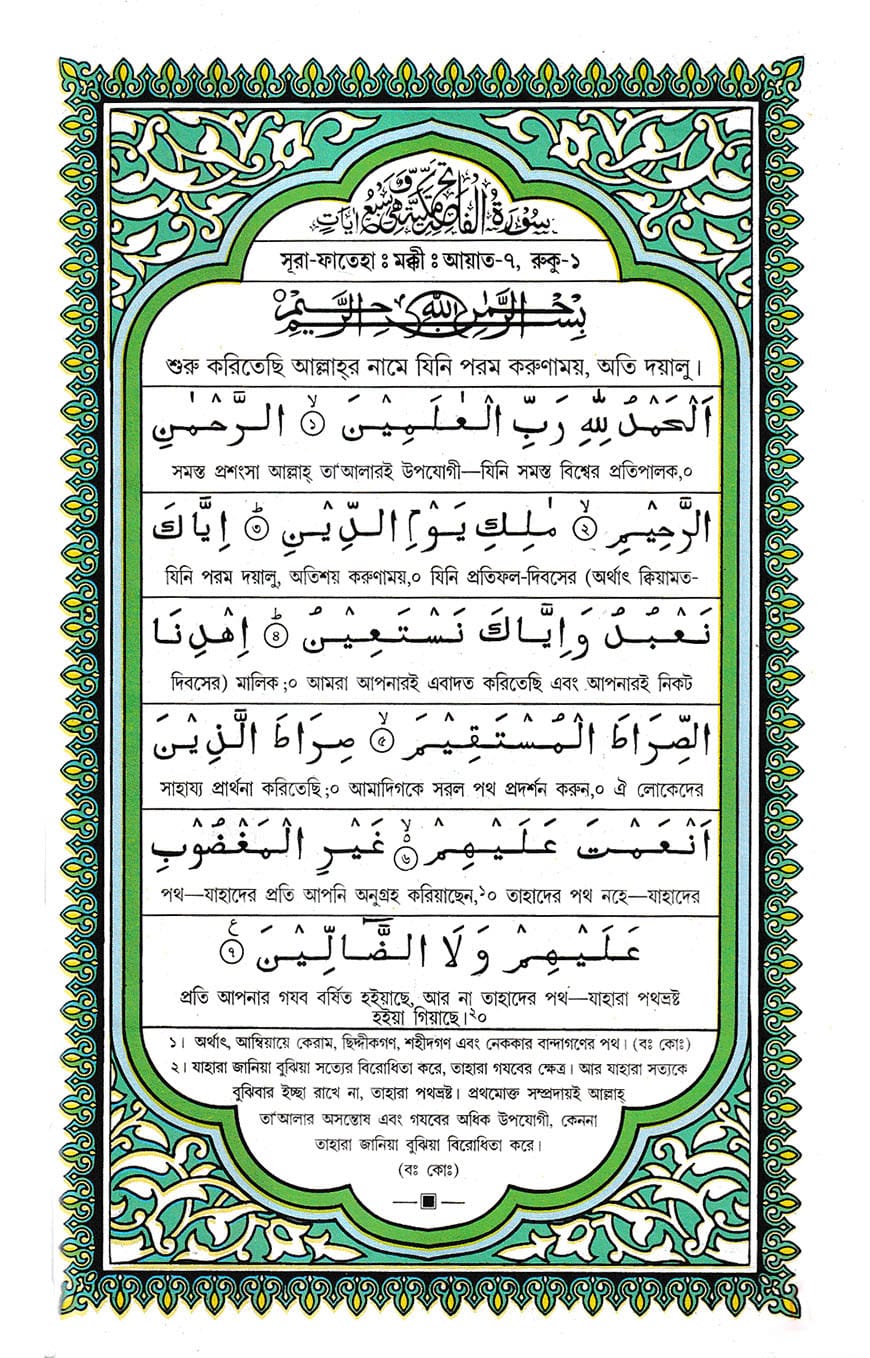 سُوْرَةُ الْفَاتِحَةِ مَكِّيَّةٌ وَّهِيَ سَبْعُ اٰيَاتٍ
সূরা-ফাতেহা ঃ মক্কী ঃ আয়াত-৭, রুকু-১
بِسْمِ اللّٰهِ الرَّحْمٰنِ الرَّحِيْمِ
শুরু করিতেছি আল্লাহ্‌র নামে যিনি পরম করুণাময়, অতি দয়ালু।
اَلْحَمْدُ لِلّٰهِ رَبِّ الْعٰلَمِيْنَ ۙ﴿১﴾ الرَّحْمٰنِ
সমস্ত প্রশংসা আল্লাহ্ তা'আলারই উপযোগী—যিনি সমস্ত বিশ্বের প্রতিপালক,০
الرَّحِيْمِ ۙ﴿২﴾ مٰلِكِ يَوْمِ الدِّيْنِ ؕ﴿৩﴾ اِيَّاكَ
যিনি পরম দয়ালু, অতিশয় করুণাময়,০ যিনি প্রতিফল-দিবসের (অর্থাৎ ক্বিয়ামত-
نَعْبُدُ وَاِيَّاكَ نَسْتَعِيْنُ ؕ﴿৪﴾ اِهْدِنَا
দিবসের) মালিক;০ আমরা আপনারই এবাদত করিতেছি এবং আপনারই নিকট
الصِّرَاطَ الْمُسْتَقِيْمَ ۙ﴿৫﴾ صِرَاطَ الَّذِيْنَ
সাহায্য প্রার্থনা করিতেছি;০ আমাদিগকে সরল পথ প্রদর্শন করুন,০ ঐ লোকেদের
اَنْعَمْتَ عَلَيْهِمْ ۙ﴿৬﴾ غَيْرِ الْمَغْضُوْبِ
পথ—যাহাদের প্রতি আপনি অনুগ্রহ করিয়াছেন,১০ তাহাদের পথ নহে—যাহাদের
عَلَيْهِمْ وَلَا الضَّآلِّيْنَ ﴿৭﴾ ع
প্রতি আপনার গযব বর্ষিত হইয়াছে, আর না তাহাদের পথ—যাহারা পথভ্রষ্ট
হইয়া গিয়াছে।২০
১। অর্থাৎ, আম্বিয়ায়ে কেরাম, ছিদ্দীকগণ, শহীদগণ এবং নেককার বান্দাগণের পথ। (বঃ কোঃ)
২। যাহারা জানিয়া বুঝিয়া সত্যের বিরোধিতা করে, তাহারা গযবের ক্ষেত্র। আর যাহারা সত্যকে
বুঝিবার ইচ্ছা রাখে না, তাহারা পথভ্রষ্ট। প্রথমোক্ত সম্প্রদায়ই আল্লাহ্
তা'আলার অসন্তোষ এবং গযবের অধিক উপযোগী, কেননা
তাহারা জানিয়া বুঝিয়া বিরোধিতা করে।
(বঃ কোঃ)